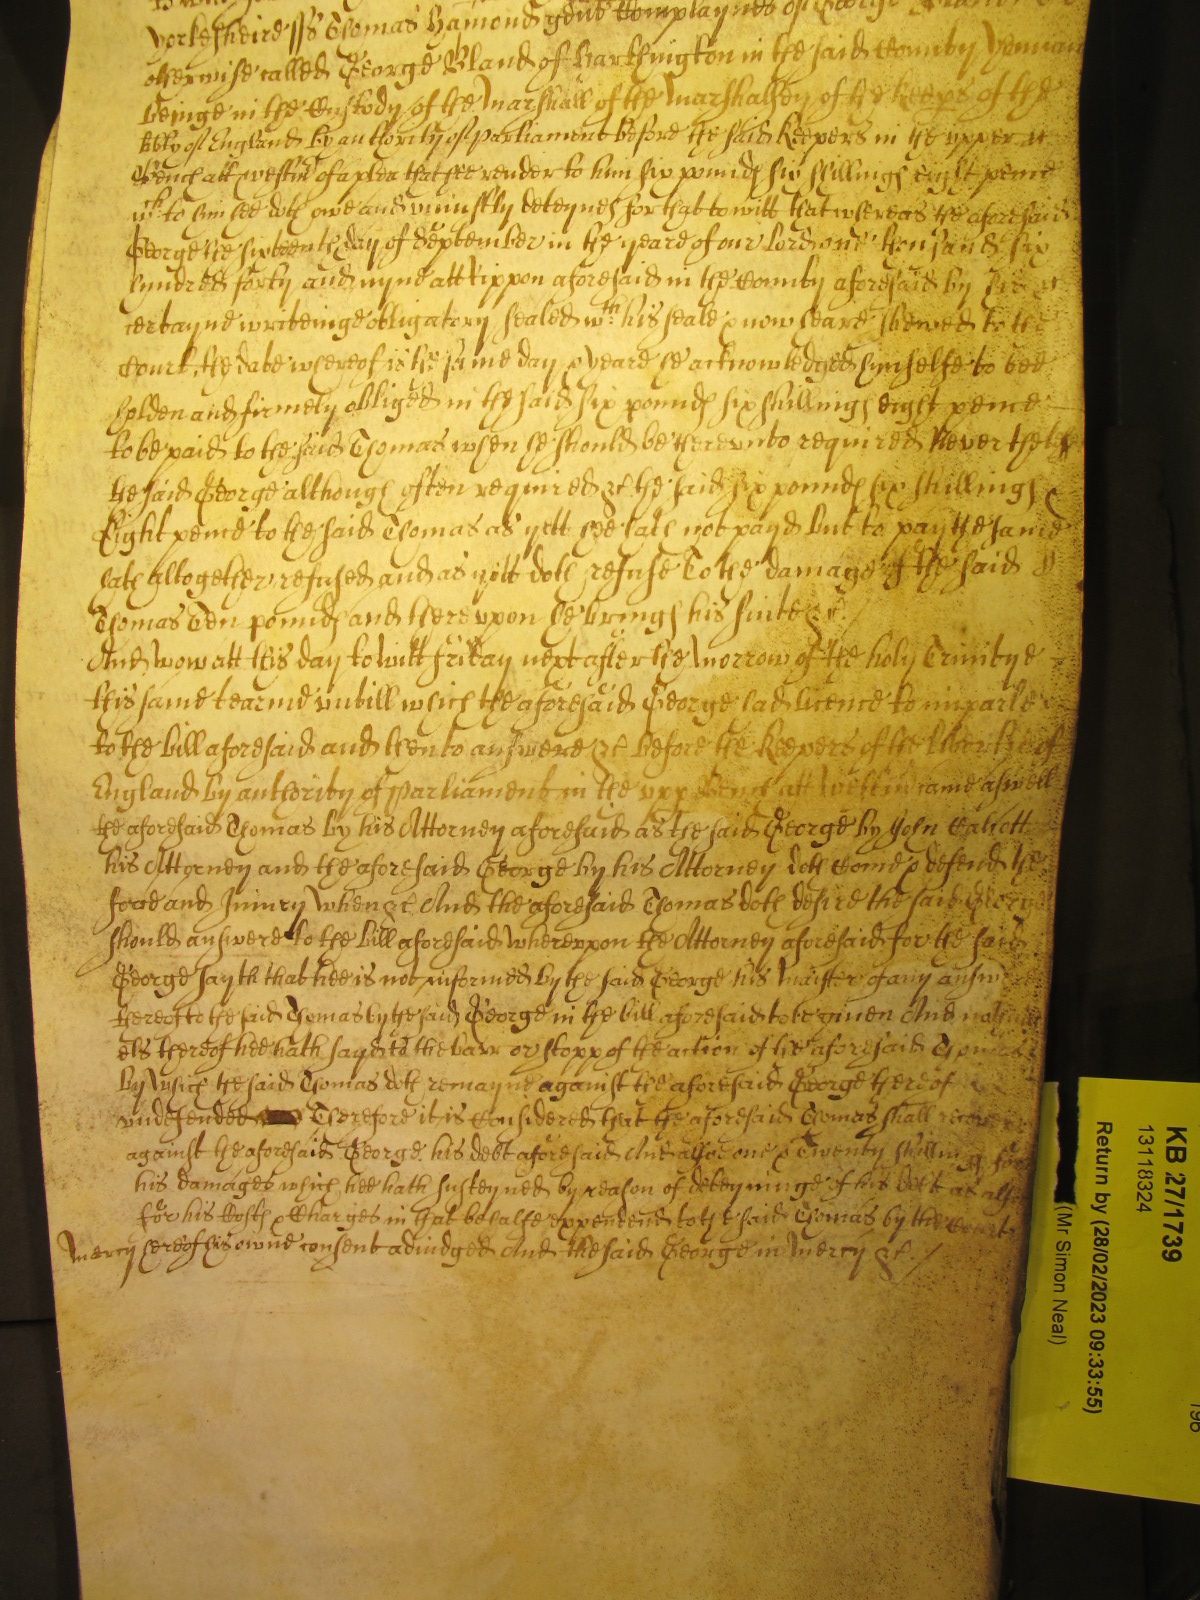 Yorkesheire ss Thomas Hamond gent Complaynes of George Bland
otherwise called George Bland of Barthington in the said County Yeoman
beinge in the Custody of the Marshall of the Marshalsey of the Keeps of the
libty of England by authority of Parliament before the said Keepers in the upper
Bench att Westm of a plea that hee render to him six pounds six shillings eight pence
wch to him hee doth owe and uniustly deteynes for that to witt that whereas the aforesaid
George the sixteenth day of September in the yeare of our Lord one thousand six
hundred forty and nyne att Rippon aforesaid in the County aforesaid by his
certayne writeinge obligatory sealed wth his seale & now heare shewed to the
Court, the date whereof is the same day & yeare he acknowledged hymselfe to bee
holden and firmely obliged in the said six pounds six shillings eight pence
to be paid to the said Thomas when he should be thereunto required Never thelesse
the said George although often required &c the said six pounds six shillings
Eight pence to the said Thomas as yett hee hath not payd but to pay the same
hath altogether refused and as yett doth refuse To the damage of the said
Thomas Ten pounds and thereupon he brings his suite &c /
And now att this day to witt friday next after the Morrow of the holy Trinitye
this same tearme untill which the aforesaid George had licence to imparle
to the bill aforesaid and then to answere &c before the Keepers of the libertie of
England by authority of Parliament in the upp Bench att Westm came aswell
the aforesaid Thomas by his Attorney aforesaid as the said George by John
his Attorney and the aforesaid George by his Attorney doth Come & defend the
force and Iniury When &c And the aforesaid Thomas doth desire the said George
should answere to the bill aforesaid Whereuppon the Attorney aforesaid for the said
George sayth that hee is not informed by the said George his Maister of any answere
thereof to the said Thomas by the said George in the bill aforesaid to be given And nothing
els thereof hee hath sayd to the barr or stopp of the action of the aforesaid Thomas
by Which the said Thomas doth remayne against the aforesaid George thereof
undefended Therefore it is Considered that the aforesaid Thomas shall recover
against the aforesaid George his debt aforesaid And alsoe one & Twenty shillings for
his damages which hee hath susteyned by reason of deteyninge of his debt as alsoe
for his Costs & Charges in that behalfe expended to the said Thomas by the Court
Mercy hereof his owne consent adiudged And the said George in Mercy &c. /
KB 271/1739
13118324
Return by (28/02/2023 09:33:55)
(Mr Simon Neal)